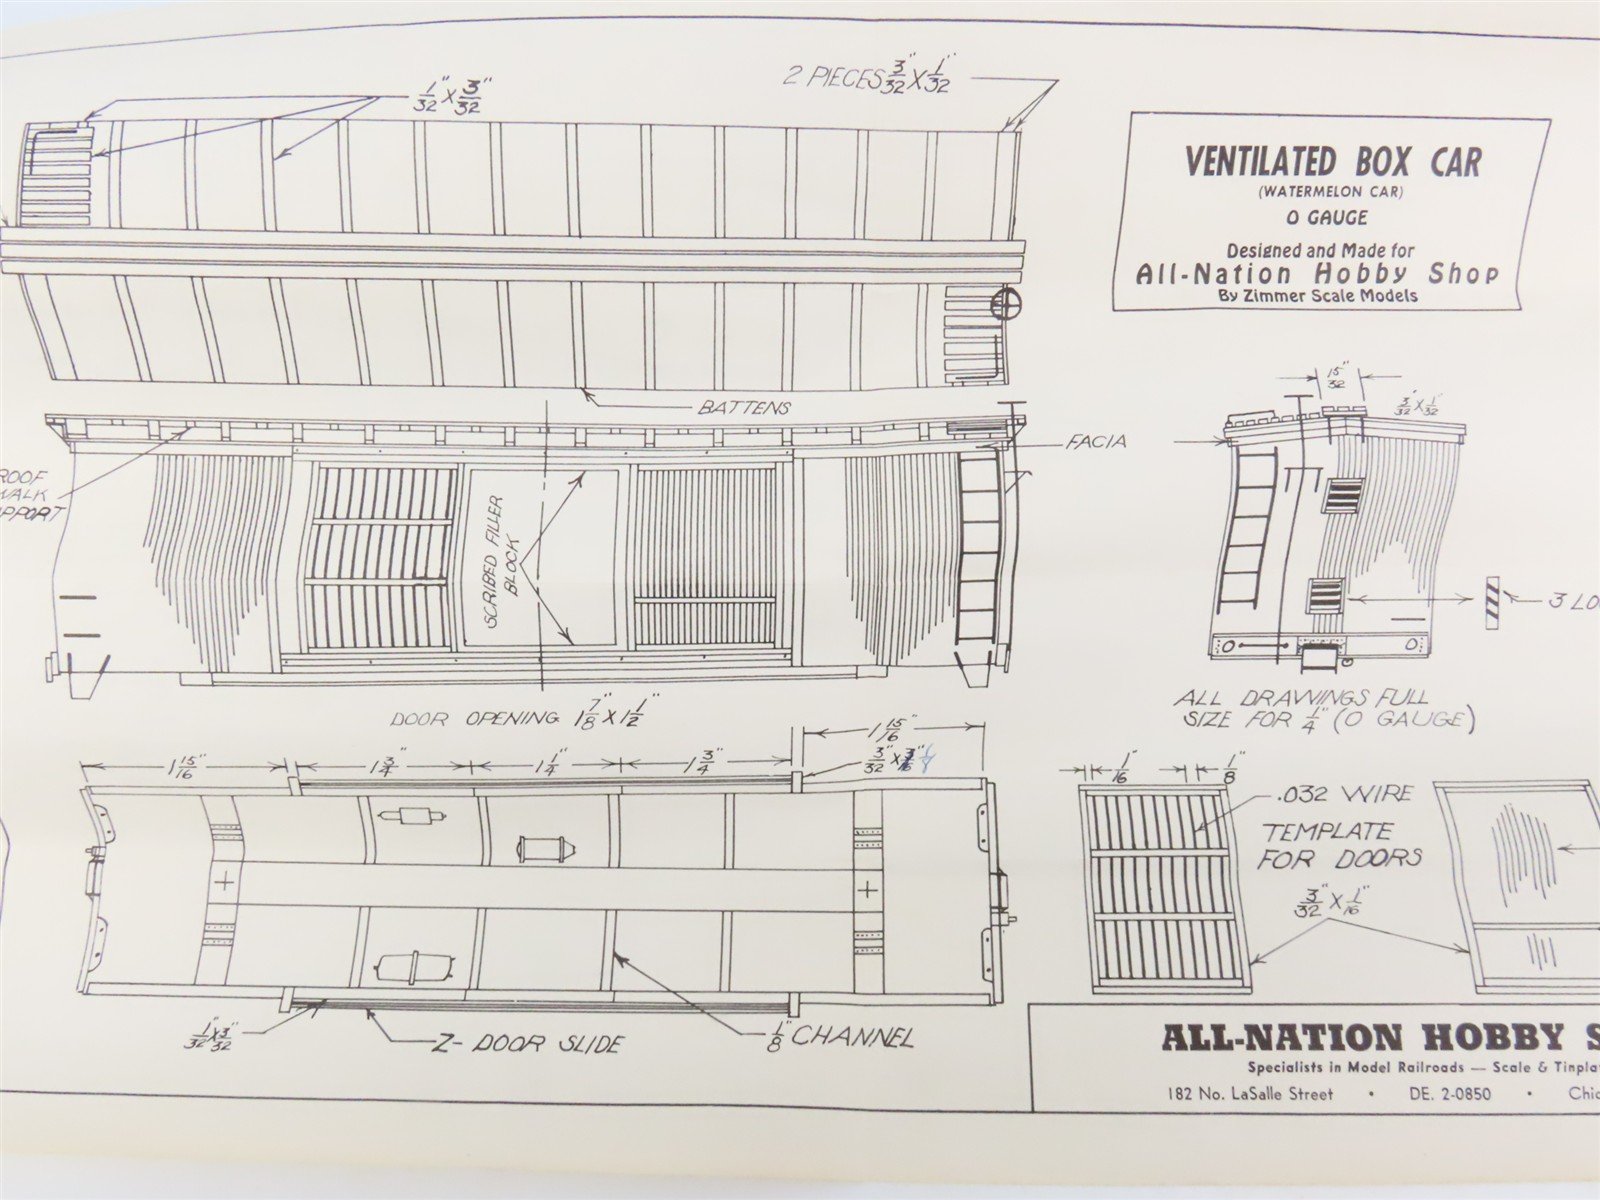 1/32" X 3/32"
2 PIECES 3/32" X 1/32"
VENTILATED BOX CAR
(WATERMELON CAR)
O GAUGE
Designed and Made for
All-Nation Hobby Shop
By Zimmer Scale Models
BATTENS
15/32"
3/32" X 1/32"
FACIA
ROOF
WALK
SUPPORT
SCRIBED FILLER
BLOCK
3 LO
DOOR OPENING 1 7/8" X 1 1/2"
ALL DRAWINGS FULL
SIZE FOR 1/4" (O GAUGE)
1 15/16"
1 3/4"
1 1/4"
1 3/4"
1 15/16"
3/32" X
1/16"
1/8"
.032 WIRE
TEMPLATE
FOR DOORS
3/32" X 1/16"
1/32" X 3/32"
Z- DOOR SLIDE
1/8" CHANNEL
ALL-NATION HOBBY S
Specialists in Model Railroads — Scale & Tinpla
182 No. LaSalle Street • DE. 2-0850 • Chic